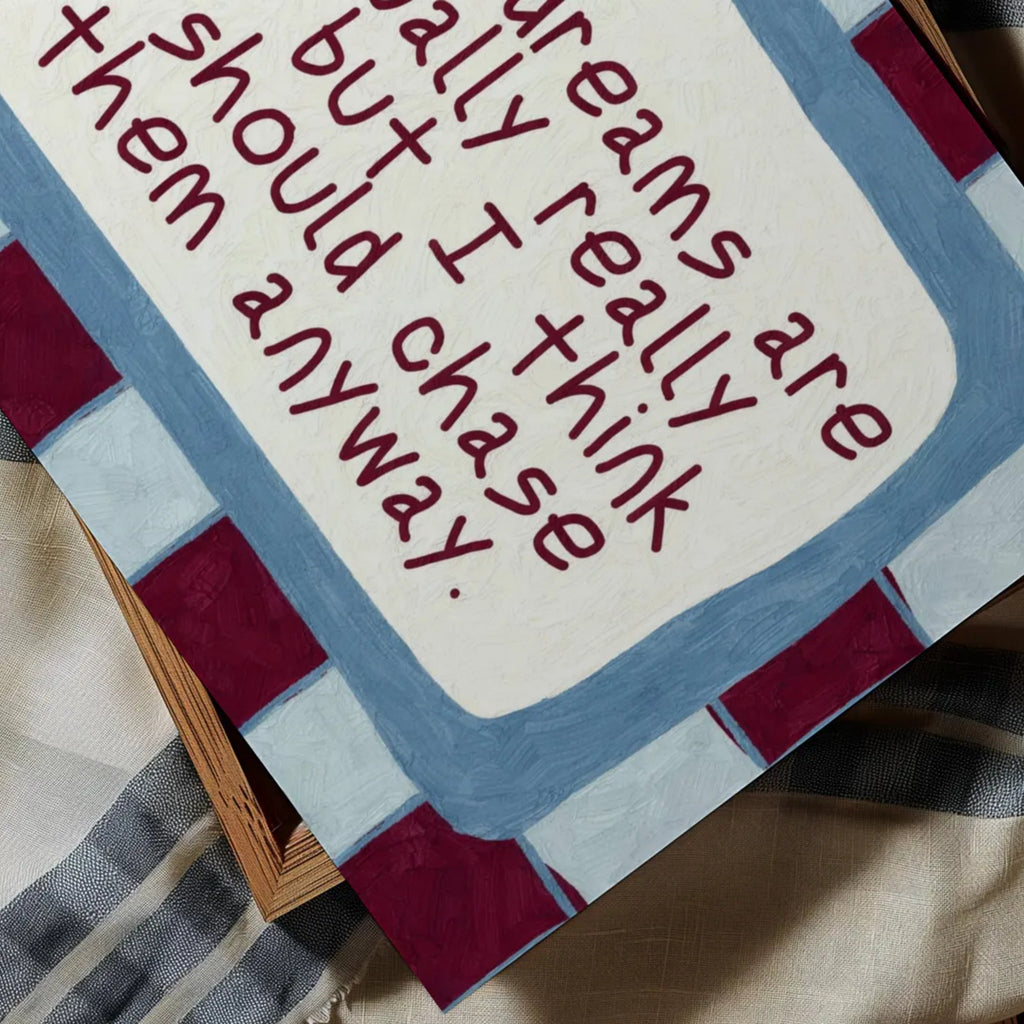 dreams are
really
but I think
should chase
them anyway.